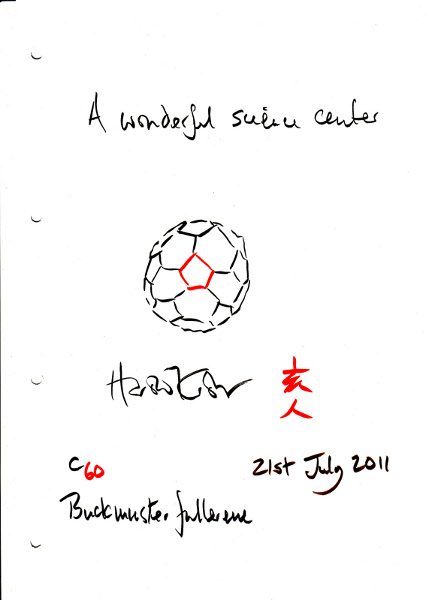 A wonderful science center
玄
人
C60
21st July 2011
Buckminsterfullerene